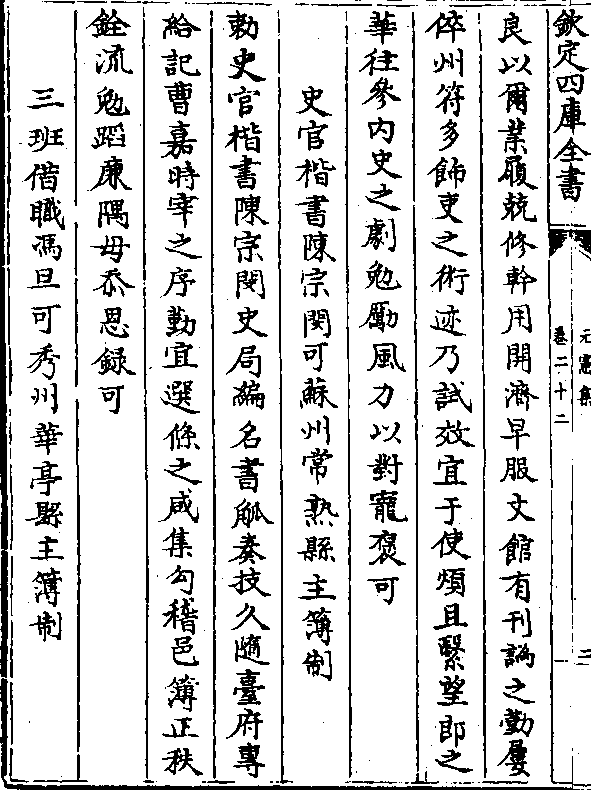 欽定四庫全書
元憲集
卷二十二
二
良以爾業履兢修幹用開濟早服文館有刋譌之勤屢
倅州符多飾吏之術迹乃試效宜于使煩且繄望郎之
華往參内史之劇勉勵風力以對寵褒可
史官楷書陳宗閔可蘇州常熟縣主簿制
勅史官楷書陳宗閔史局編名書觚奏技久隨臺府專
給記曹嘉時宰之序勤宜選條之咸集勾稽邑簿正秩
銓流勉蹈亷隅毋忝恩録可
三班借職馮旦可秀州華亭縣主簿制